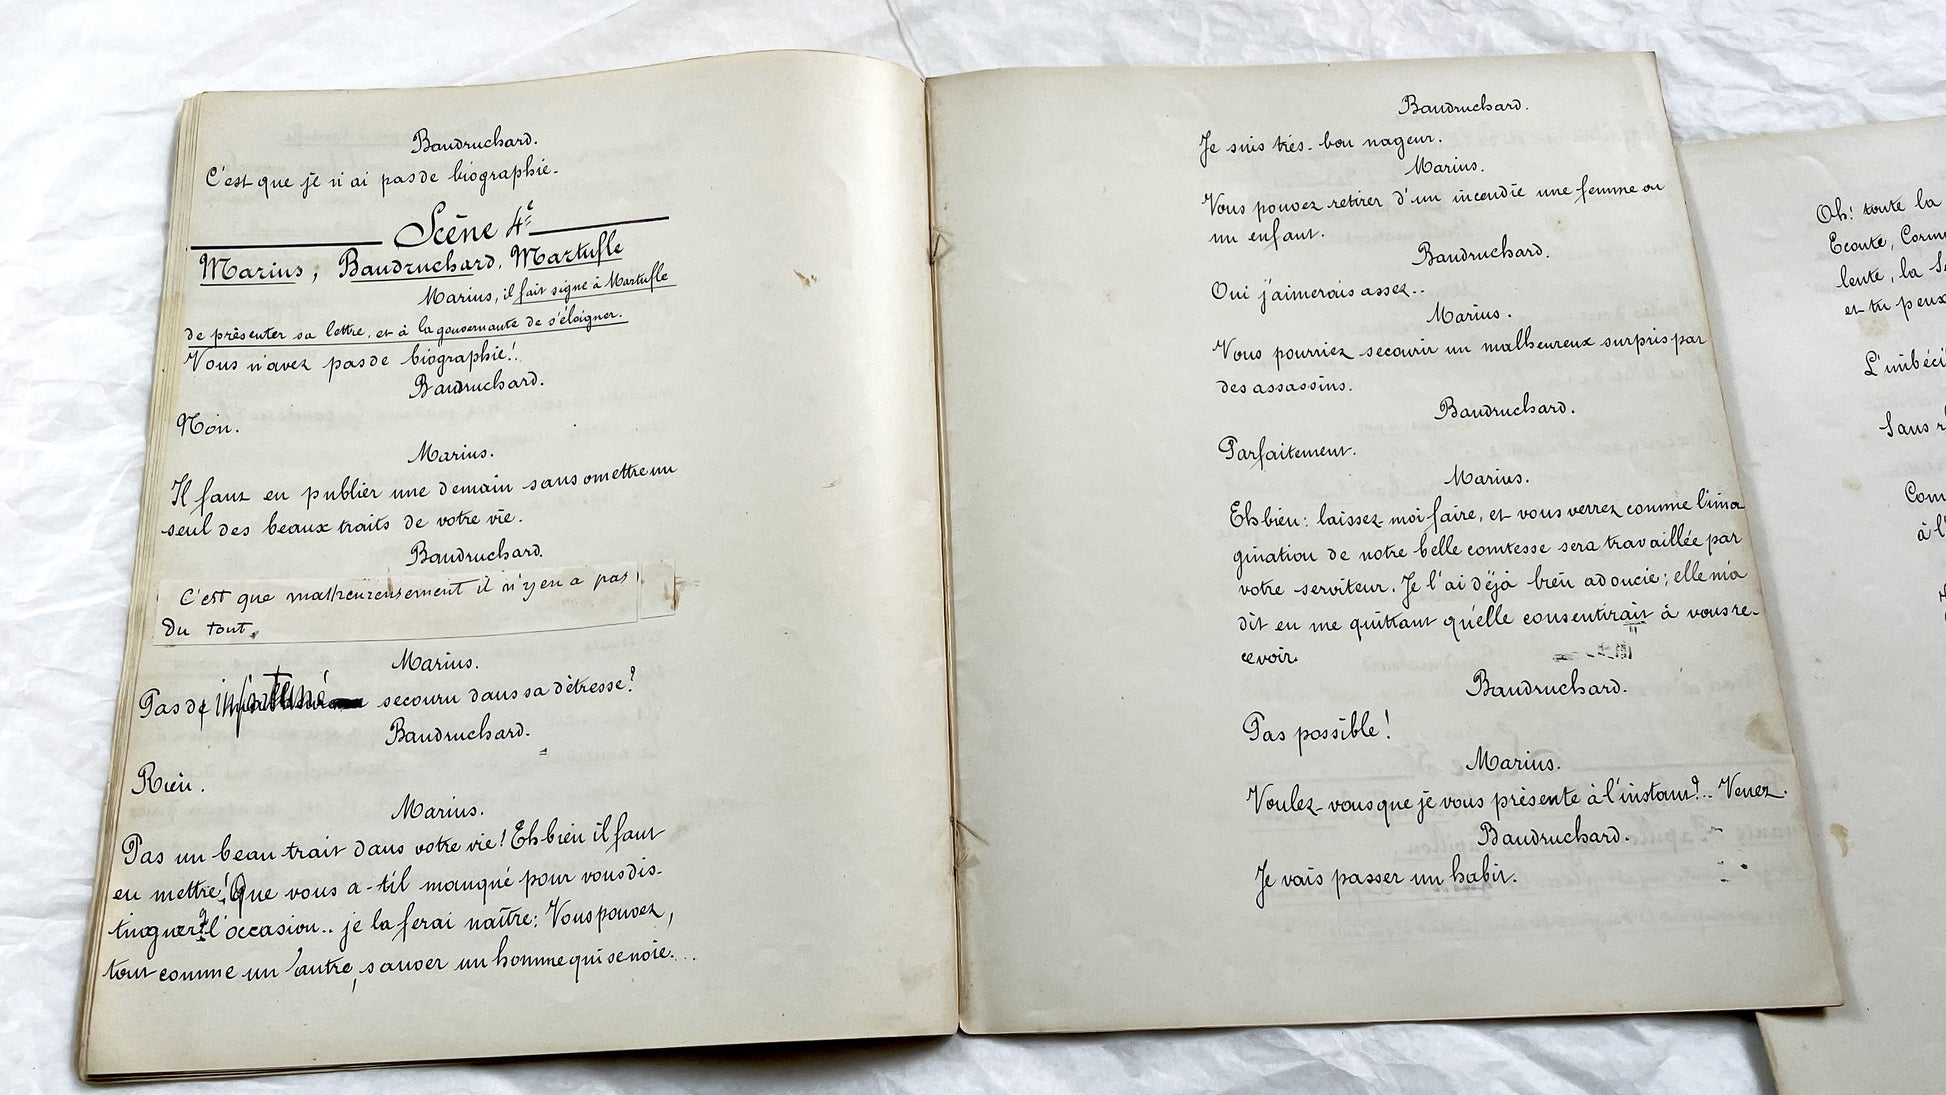 Baudruchard.
C'est que je n'ai pas de biographie.
Scène 4e
Marius, Baudruchard, Martufle
Marius, il fait signe à Martufle
de présenter sa lettre, et à la gouvernante de s'éloigner.
Vous n'avez pas de biographie!
Baudruchard.
Non.
Marius.
Il faut en publier une demain sans omettre un
seul des beaux traits de votre vie.
Baudruchard.
C'est que malheureusement il n'y en a pas
du tout.
Marius.
Pas de infortuné secouru dans sa détresse?
Baudruchard.
Rien.
Marius.
Pas un beau trait dans votre vie! Eh bien il faut
en mettre! Que vous a-t-il manqué pour vous dis-
tinguer? l'occasion.. je la ferai naître: Vous pouvez,
tout comme un autre, sauver un homme qui se noie...
Baudruchard.
Je suis très-bon nageur.
Marius.
Vous pouvez retirer d'un incendie une femme ou
un enfant.
Baudruchard.
Oui j'aimerais assez..
Marius.
Vous pourriez secourir un malheureux surpris par
des assassins.
Baudruchard.
Parfaitement.
Marius.
Eh bien: laissez-moi faire, et vous verrez comme l'ima
gination de notre belle comtesse sera travaillée par
votre serviteur. Je l'ai déjà bien adoucie; elle m'a
dit en me quittant qu'elle consentirait à vous re-
cevoir.
Baudruchard.
Pas possible!
Marius.
Voulez-vous que je vous présente à l'instant?.. Venez.
Baudruchard.
Je vais passer un habit.
Oh! toute la
Ecoute,
lente, la
et tu peux
L'imbéci
Sans
Com
à l'